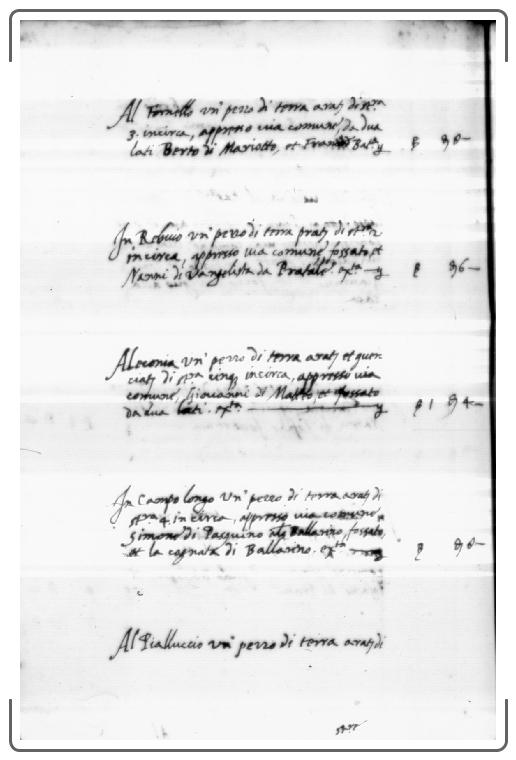 Al Fornello un' pezzo di terra arat. di st.ra
3. incirca, appresso via comune, da dua
lati Berto di Mariotto, et Franc.
In Rebuio un' pezzo di terra prat. di st.ra 2
incirca, appresso via comune fossato, et
Nanni di Vangelista da Pratale. ex.ta
Aleconia un' pezzo di terra arat. et quer
ciat. di st.ra cinq. incirca, appresso via
comune, Giovanni di Matteo, et fossato
da dua lati. ex.ta
In Campo longo un' pezzo di terra arat. di
st.ra 4. incirca, appresso via comune,
Simone di Pasquino Ballarino, fossato,
et la cognata di Ballarino. ex.ta
Al Pialluccio un' pezzo di terra arat. di
st.ra